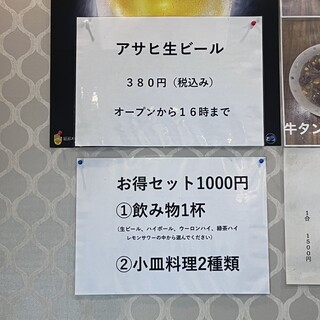 アサヒ生ビール
380円（税込み）
オープンから16時まで
お得セット1000円
①飲み物1杯
（生ビール、ハイボール、ウーロンハイ、緑茶ハイ
レモンサワーの中から選んでください）
②小皿料理2種類
牛タン
1合 1500円